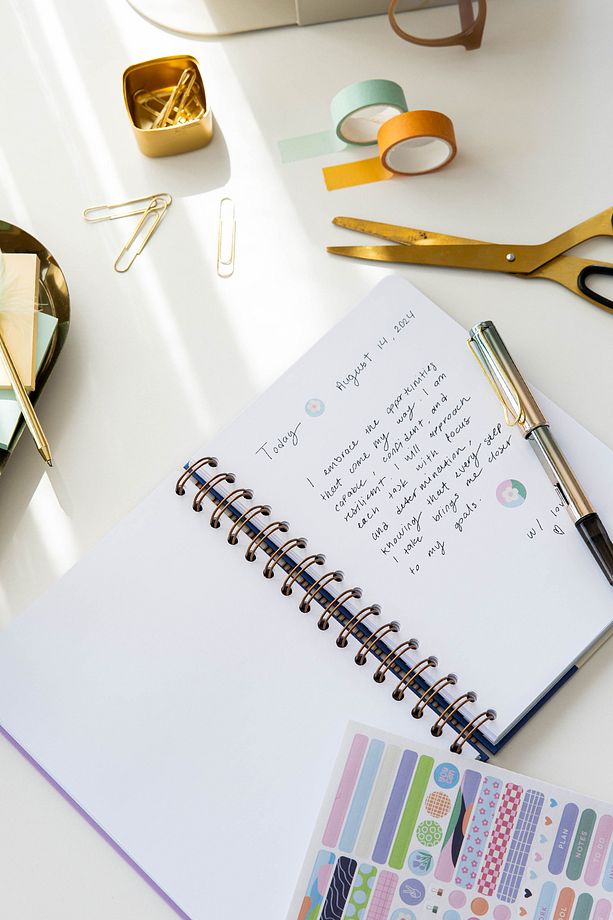 August 14, 2024
Today
I embrace the opportunities
that come my way. I am
capable, confident, and
resilient. I will approach
each task with focus
and determination,
knowing that every step
I take brings me closer
to my goals.
w/ love
PLAN
NOTES
TO DO